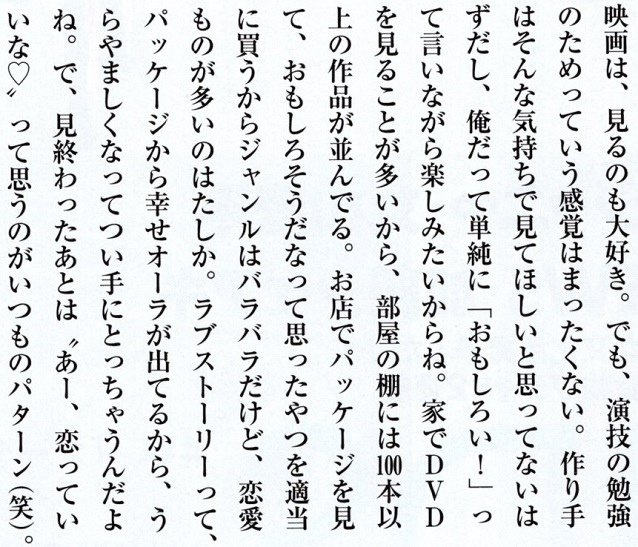 映画は、見るのも大好き。でも、演技の勉強
のためっていう感覚はまったくない。作り手
はそんな気持ちで見てほしいと思ってないは
ずだし、俺だって単純に「おもしろい！」っ
て言いながら楽しみたいからね。家でDVD
を見ることが多いから、部屋の棚には100本以
上の作品が並んでる。お店でパッケージを見
て、おもしろそうだなって思ったやつを適当
に買うからジャンルはバラバラだけど、恋愛
ものが多いのはたしか。ラブストーリーって、
パッケージから幸せオーラが出てるから、う
らやましくなってつい手にとっちゃうんだよ
ね。で、見終わったあとは〝あー、恋ってい
いな♡〟って思うのがいつものパターン（笑）。